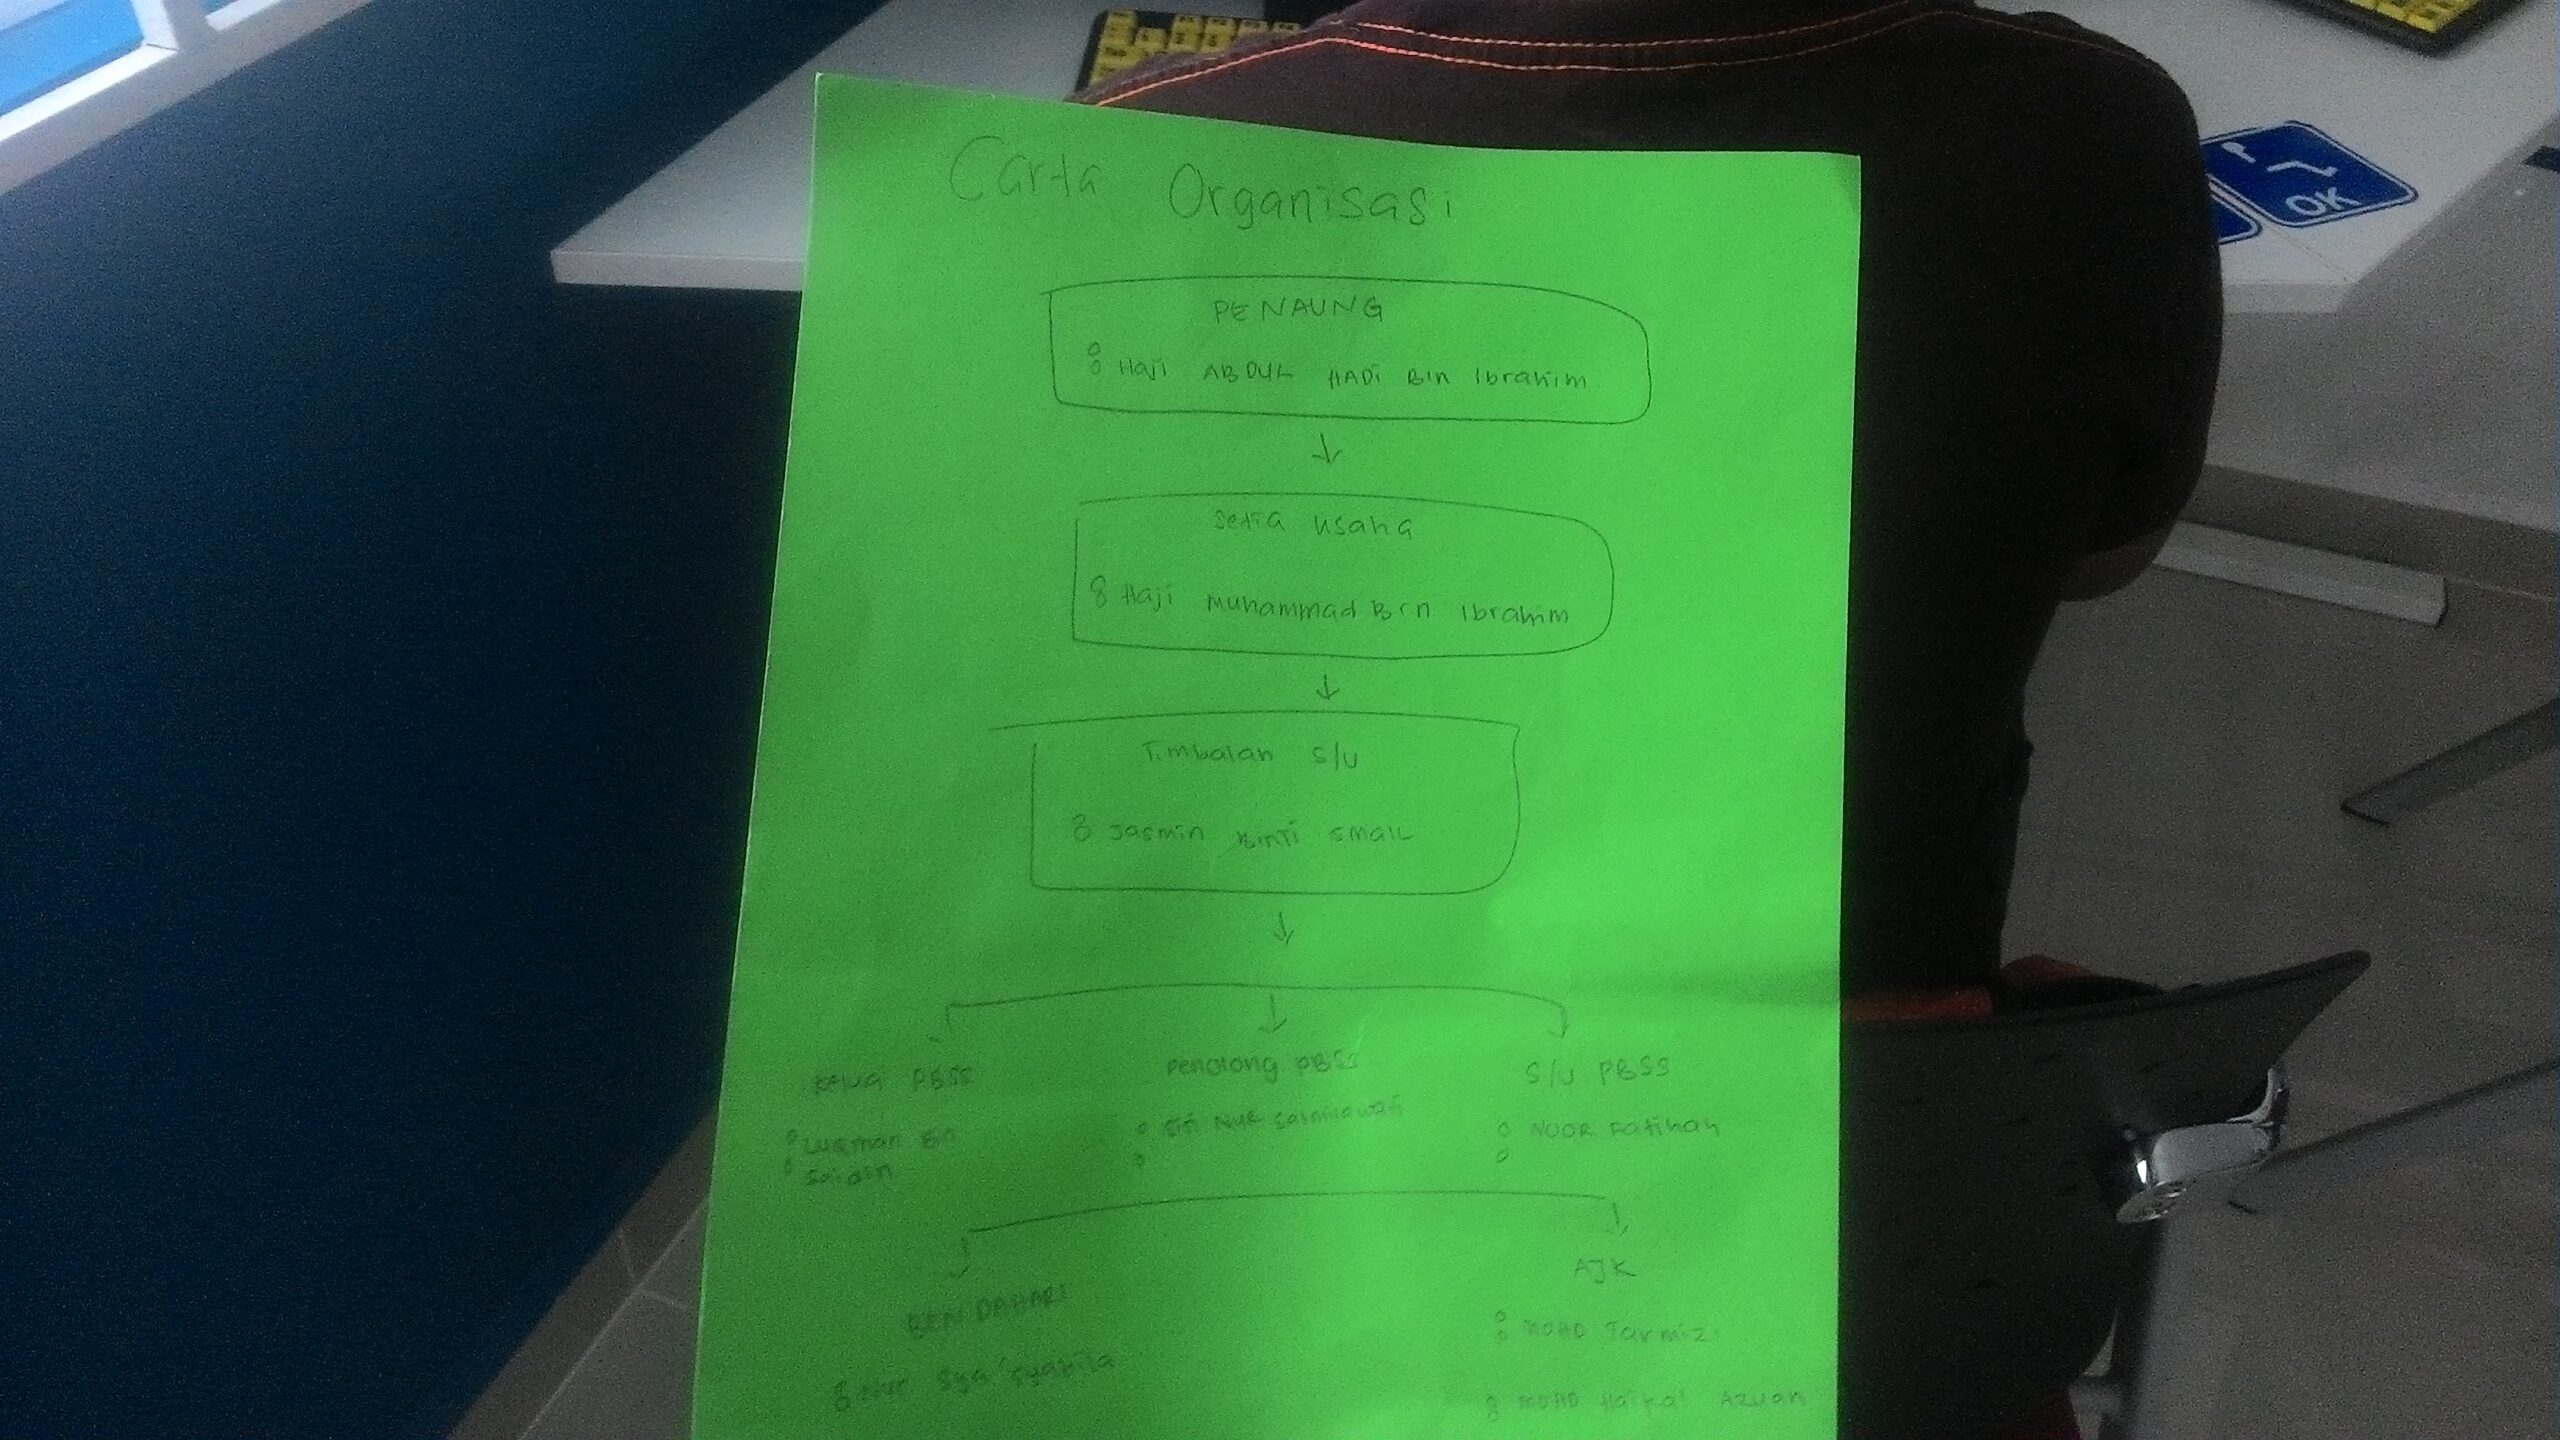 Carta Organisasi
PENAUNG
: Haji ABDUL HADi Bin Ibrahim
Setia usaha
: Haji Muhammad Bin Ibrahim
Timbalan S/U
: Jasmin Binti Smail
PBSS
Penolong PBSS
S/U PBSS
: Luqman Bin
Saidin
: Siti NUR
: NOOR Fatihah
BENDAHARI
AJK
: MOHD Tarmizi
: Nur Sya'syakila
: MOHD Haikal Azuan
OK